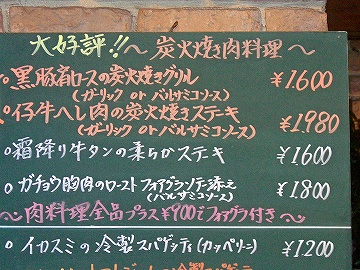 大好評!!〜炭火焼き肉料理〜
黒豚肩ロースの炭火焼きグリル ¥1.600
(ガーリック or バルサミコソース)
仔牛ヘレ肉の炭火焼きステキ ¥1.980
(ガーリック or バルサミコソース)
・霜降り牛タンの柔らかステキ ¥1.600
・ガチョウ胸肉のロースト フォアグラソテー添え ¥1.800
(バルサミコソース)
〜肉料理全品プラス¥900でフォアグラ付き〜
・イカスミの冷製スパゲッティ(カッペリーニ) ¥1.200